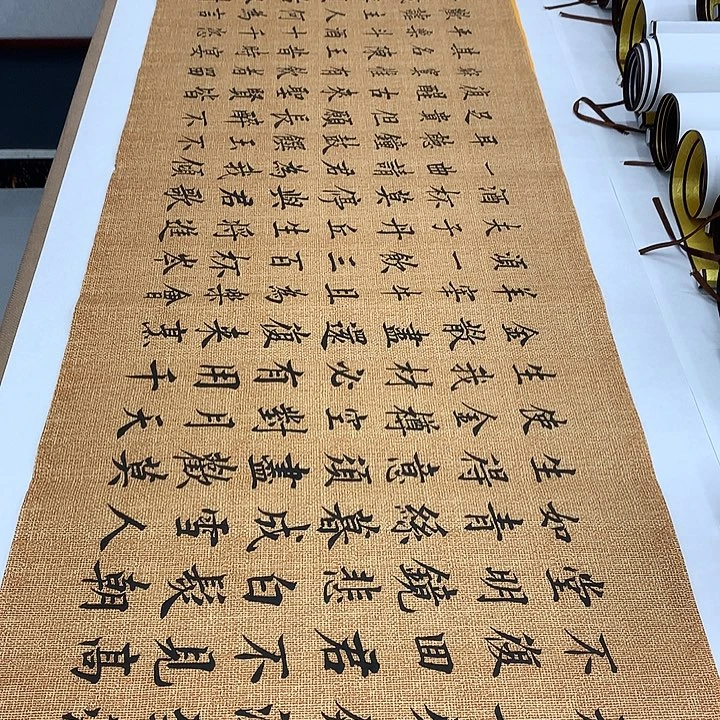 不復回君不見高
堂明鏡悲白髮朝
如青絲暮成雪人
生得意須盡歡莫
使金樽空對月天
生我材必有用千
金散盡還復來烹
羊宰牛且為樂會
須一飲三百杯岑
夫子丹丘生將進
酒杯莫停與君歌
一曲請君為我傾
耳聽鐘鼓饌玉不
足貴但願長醉不
復醒古來聖賢皆
寂寞惟有飲者留
其名陳王昔時宴
平樂斗酒十千恣
歡謔主人何為言